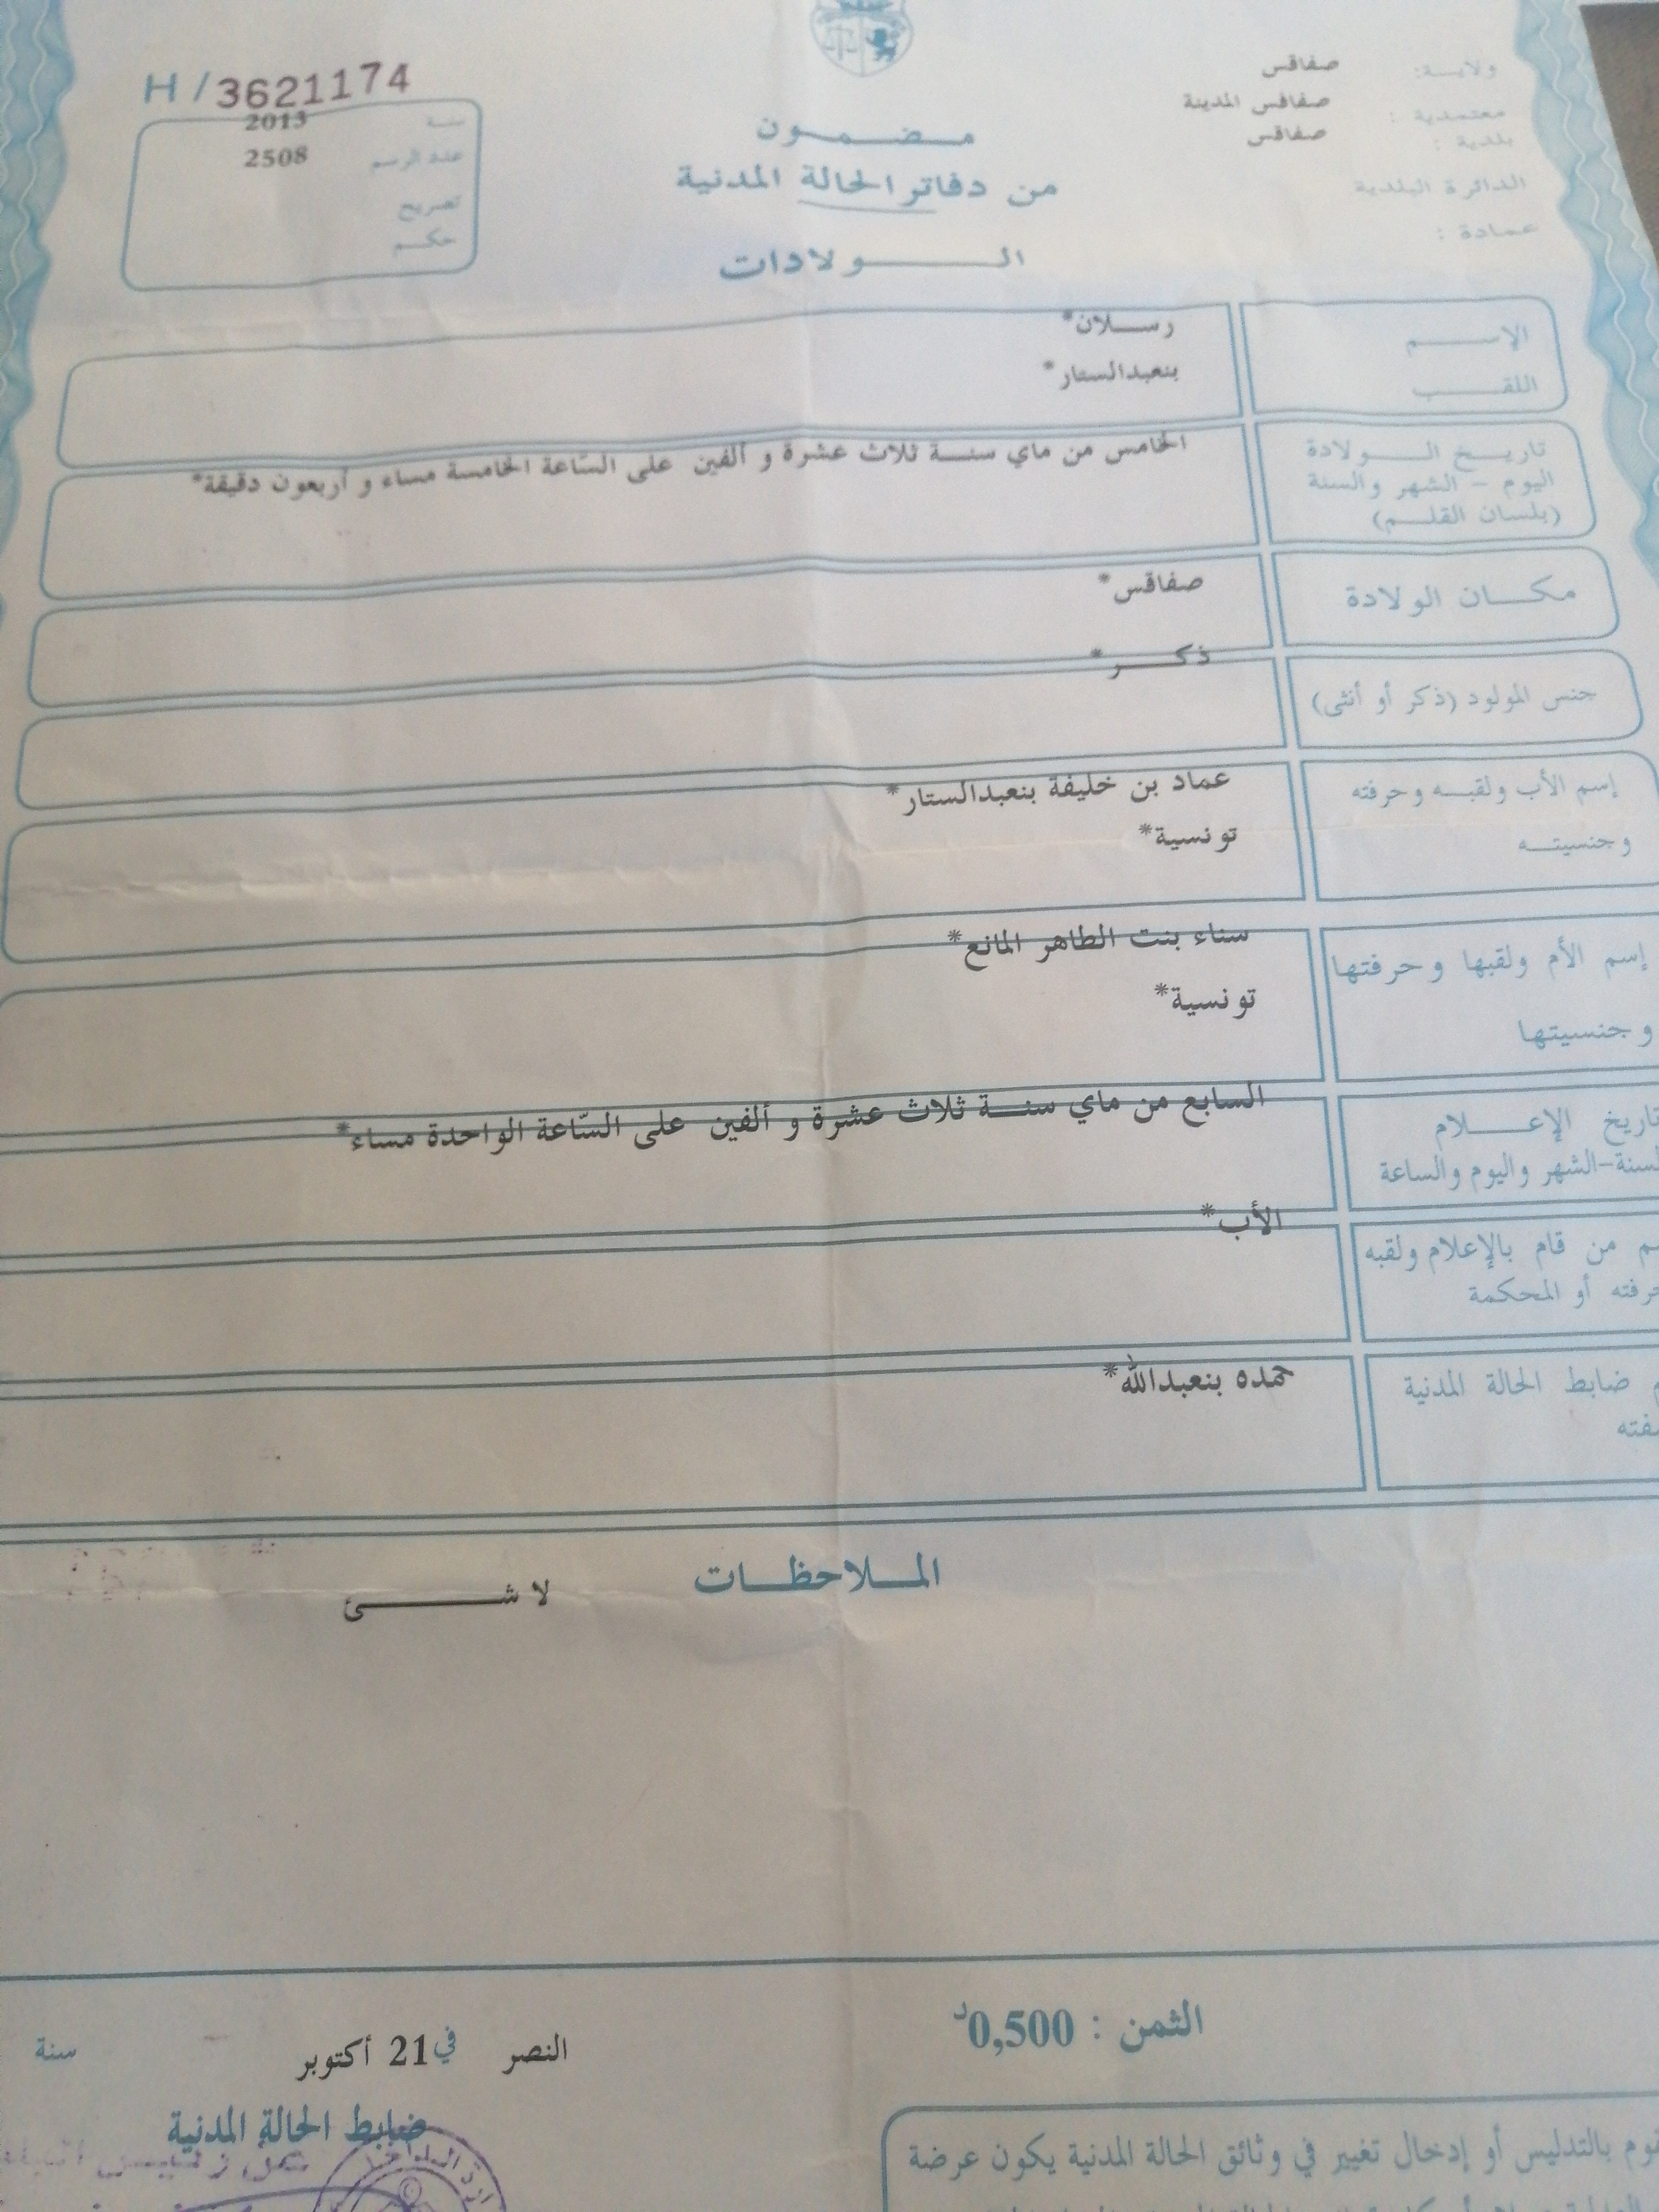 H/3621174
سنة 2013
عدد الرسم 2508
تصريح
حكم
ولاية: صفاقس
معتمدية: صفاقس المدينة
بلدية: صفاقس
الدائرة البلدية
عمادة:
مضمون
من دفاتر الحالة المدنية
الولادات
الإسم رسلان*
اللقب بنعبدالستار*
تاريخ الولادة
اليوم - الشهر والسنة
(بلسان القلم)
الخامس من ماي سنة ثلاث عشرة و ألفين على السّاعة الخامسة مساء و أربعون دقيقة*
مكان الولادة صفاقس*
جنس المولود (ذكر أو أنثى) ذكر*
إسم الأب ولقبه وحرفته عماد بن خليفة بنعبدالستار*
وجنسيته تونسية*
إسم الأم ولقبها وحرفتها سناء بنت الطاهر المانع*
وجنسيتها تونسية*
تاريخ الإعلام
السنة-الشهر واليوم والساعة
السابع من ماي سنة ثلاث عشرة و ألفين على السّاعة الواحدة مساء*
من قام بالإعلام ولقبه الأب*
أو المحكمة
ضابط الحالة المدنية حمده بنعبدالله*
الملاحظات
لا شئ
الثمن : 0,500د
النصر في 21 أكتوبر سنة
ضابط الحالة المدنية
بالتدليس أو إدخال تغيير في وثائق الحالة المدنية يكون عرضة